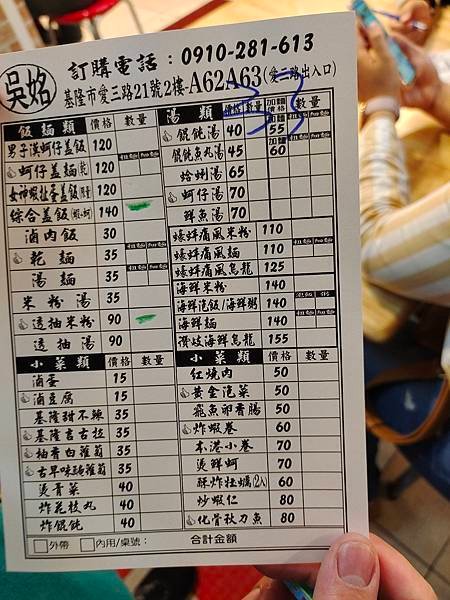 吳姳
訂購電話：0910-281-613
基隆市愛三路21號2樓-A62A63(愛三路出入口)
飯麵類 價格 數量
男子漢蚵仔蓋飯 120
蚵仔蓋麵(乾) 120
120
綜合蓋飯(蝦+蚵) 140
滷肉飯 30
乾麵 35
湯麵 35
米粉湯 35
透抽米粉 90
透抽湯 90
湯類 價格 數量 加麵價格 數量
餛飩湯 40 加麵 55
餛飩魚丸湯 45 加麵 60
蛤蜊湯 65
蚵仔湯 70
鮮魚湯 70
蠔蚌痛風米粉 110
蠔蚌痛風麵 110
蠔蚌痛風烏龍 125
海鮮米粉 140
海鮮泡飯/海鮮粥 140
海鮮麵 140
讚岐海鮮烏龍 155
小菜類 價格 數量
滷蛋 15
滷豆腐 15
基隆甜不辣 35
基隆吉古拉 35
柚香白蘿蔔 35
古早味醃蘿蔔 35
燙青菜 40
炸花枝丸 40
炸餛飩 40
小菜類 價格 數量
紅燒肉 50
黃金泡菜 50
飛魚卵香腸 50
炸蝦卷 60
本港小卷 70
燙鮮蚵 70
酥炸牡蠣(2入) 60
炒蝦仁 80
化骨秋刀魚 80
外帶 內用/桌號： 合計金額